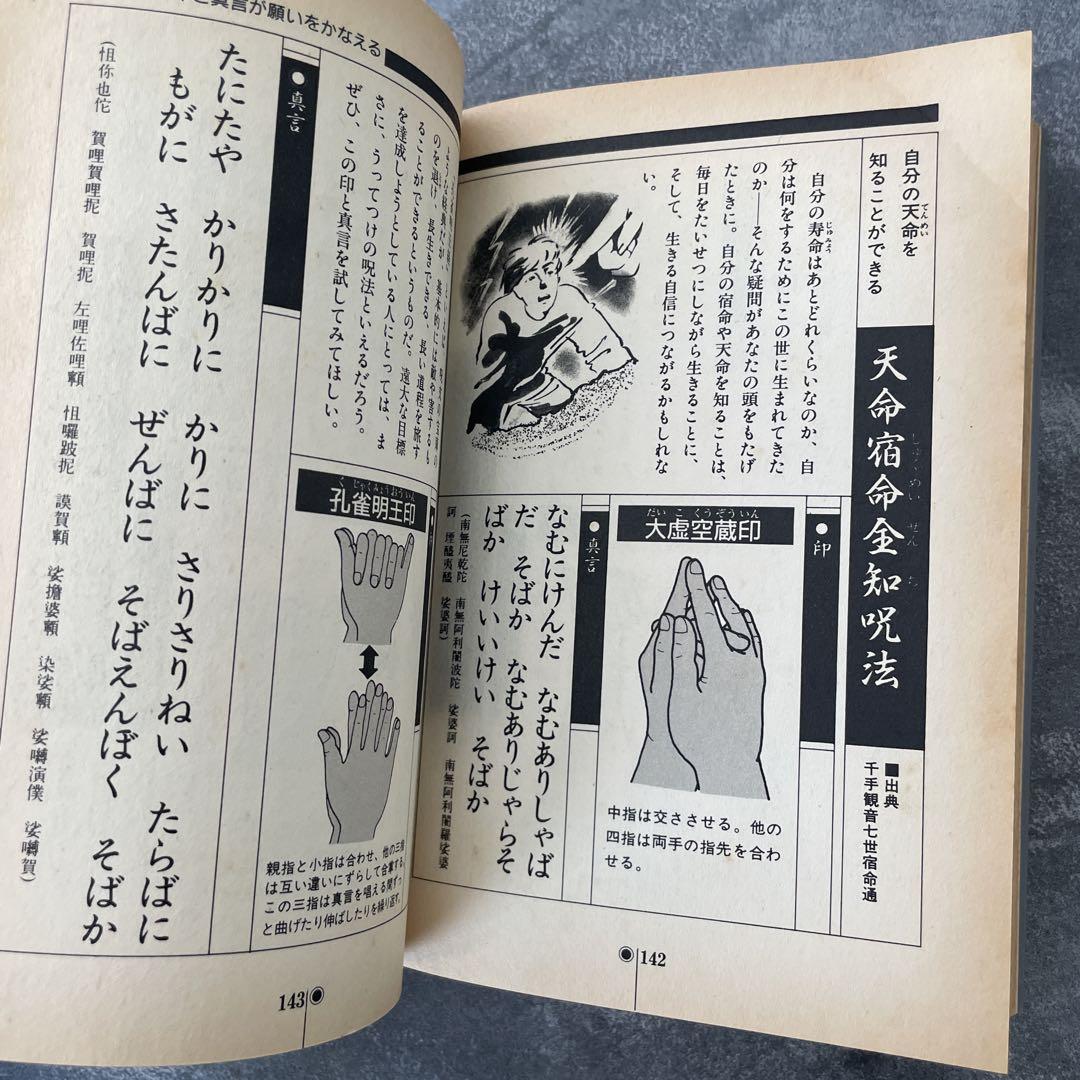 自分の天命を
知ることができる
天命宿命全知呪法
しゅくめいぜんち
■出典
千手観音七世宿命通
自分の寿命はあとどれくらいなのか、自
分は何をするためにこの世に生まれてきた
のか——そんな疑問があなたの頭をもたげ
たときに。自分の宿命や天命を知ることは、
毎日をたいせつにしながら生きることに、
そして、生きる自信につながるかもしれな
い。
●印
だいこくうぞういん
大虚空蔵印
中指は交ささせる。他の
四指は両手の指先を合わ
せる。
●真言
なむにけんだ なむありしゃば
だ そばか なむありじゃらそ
ばか けいいけい そばか
(南無尼乾陀 南無阿利闍波陀 娑婆訶 南無阿利闍羅娑婆
訶 堙醯夷醯 娑婆訶)
142
と真言が願いをかなえる
基本的には敵や害するも
のを退け、長生きできる、長い道程を旅す
ることができるというものだ。遠大な目標
を達成しようとしている人にとっては、ま
さに、うってつけの呪法といえるだろう。
ぜひ、この印と真言を試してみてほしい。
くじゃくみょうおういん
孔雀明王印
親指と小指は合わせ、他の三指
は互い違いにずらして合掌する。
この三指は真言を唱える間ずっ
と曲げたり伸ばしたりを繰り返す。
●真言
たにたや かりかりに かりに さりさりねい たらばに
もがに さたんばに ぜんばに そばえんぼく そばか
(怛你也佗 賀哩賀哩抳 賀哩抳 左哩佐哩顙 怛囉跛抳 謨賀顙 娑擔婆顙 染娑顙 娑嚩演僕 娑嚩賀)
143